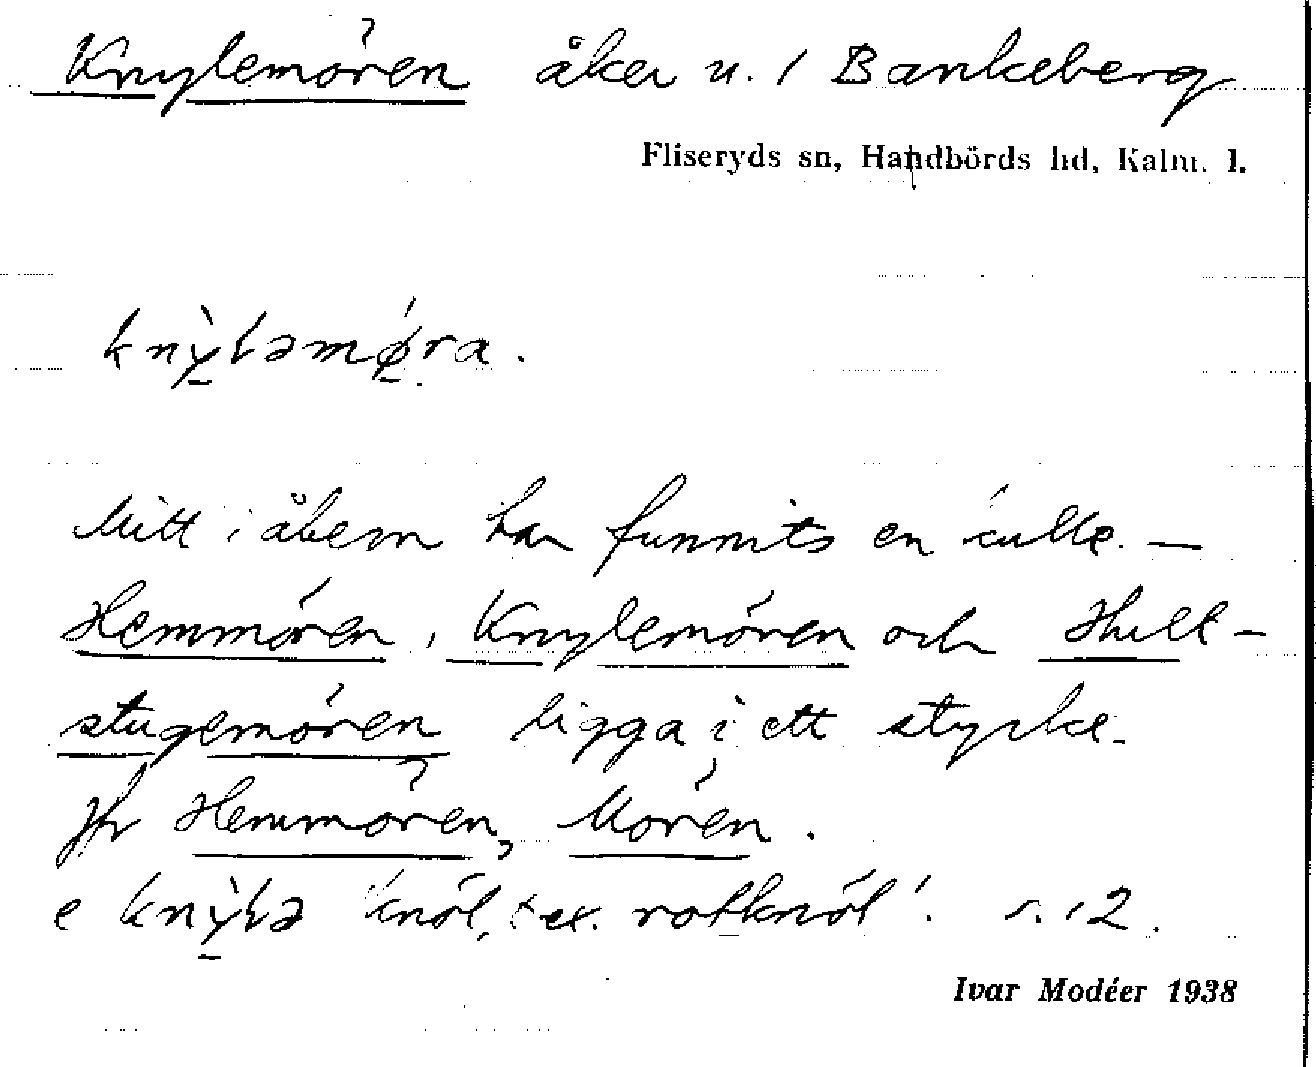 Knylemören åker u. 1 Bankeberg
Fliseryds sn, Handbörds hd, Kalm. l.
knỳləmǿra.
Mitt i åkern har funnits en kulle. –
Hemmören, Knylemören och Hult-
stugemören ligga i ett stycke.
Jfr Hemmören, Mören.
e knỳlə 'knöl, t. ex. rotknöl'. s. 12.
Ivar Modéer 1938